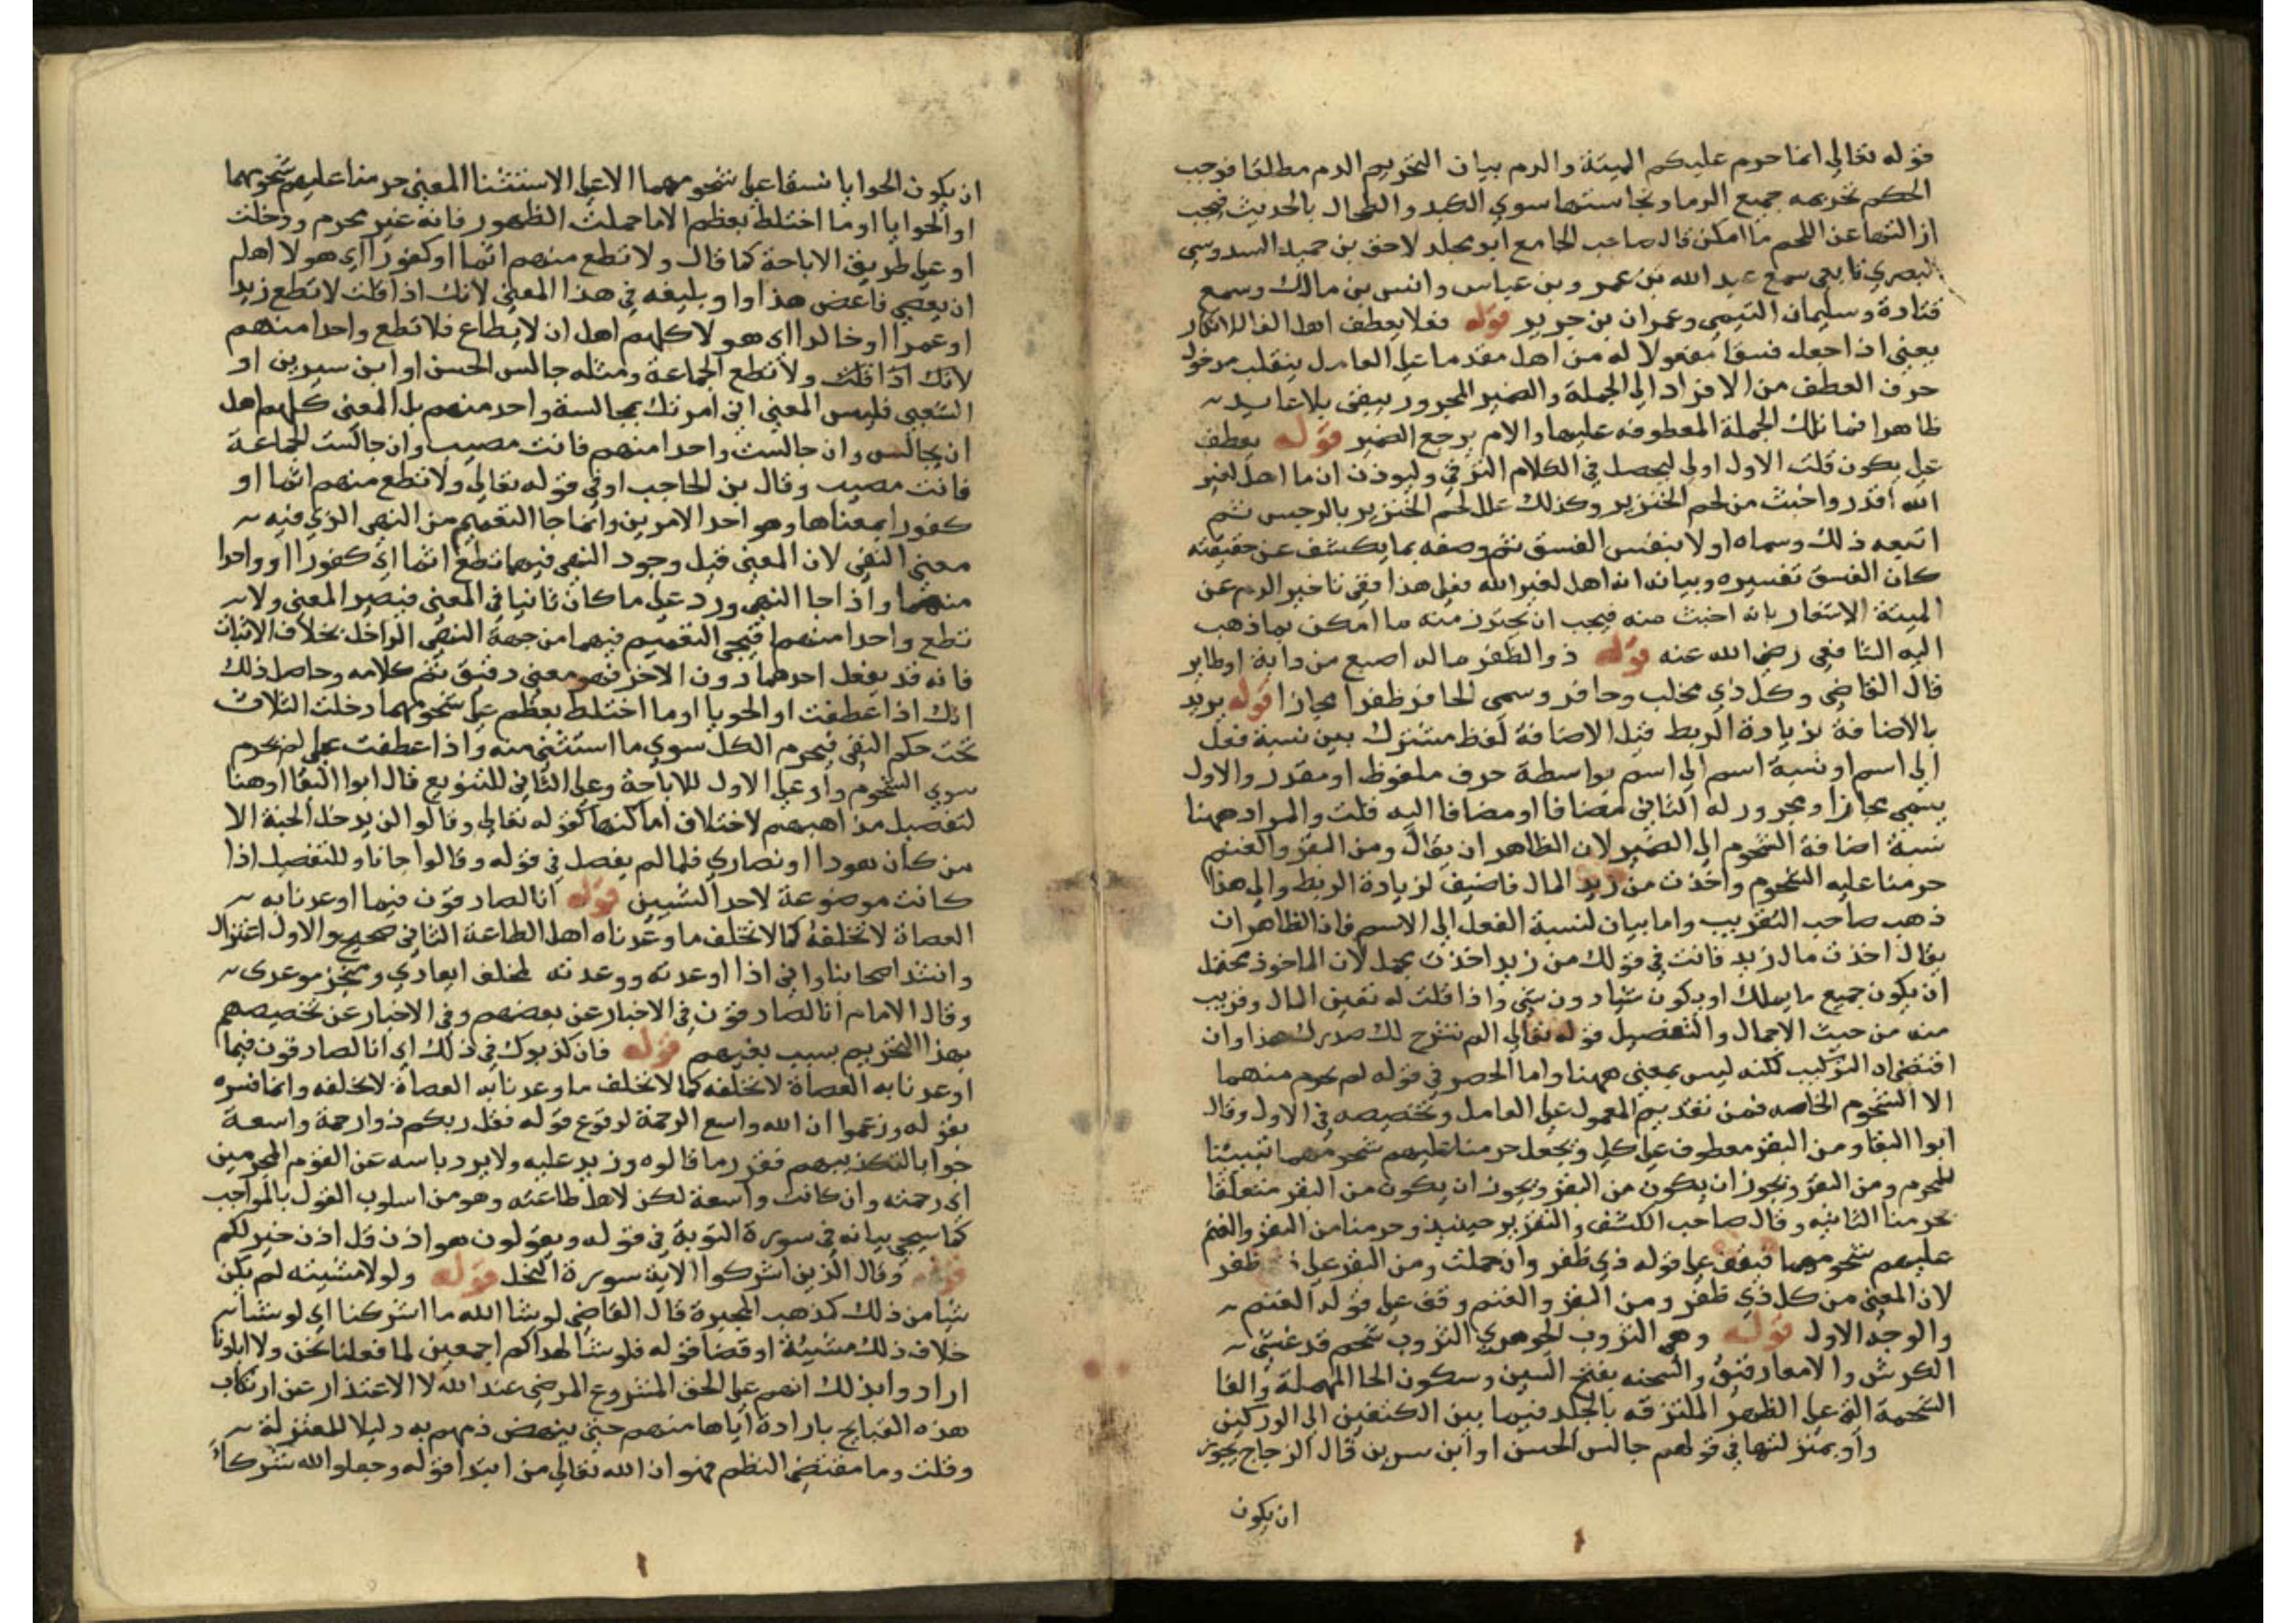 قوله تعالي انما حرم عليكم الميتة والدم بيان التحريم الدم مطلقا فوجب
الحكم تحريمه جميع الدما ونجاستها سوي الكبد والطحال بالحديث فيجب
ازالتها عن اللحم ما امكن قال صاحب الجامع ابو مجلد لاحق بن حميد السدوسي
البصري تابعي سمع عبد الله بن عمر وبن عباس وانس بن مالك وسمع
قتادة وسليمان التيمي وعمران بن جرير قوله فعلا يعطف اهل
يعني اذا جعل فسقا مفعولا له من اهل مقدما علي العامل ينقلب مدخول
حرف العطف من الافراد الي الجملة والضمير المجرور يبقى بلا عايد
ظاهرا فما تلك الجملة المعطوفه عليها والام يرجع الضمير قوله يعطف
علي يكون قلت الاول اولي ليحصل في الكلام الترقي وليوذن ان ما اهل لغير
الله اقذر واخبث من لحم الخنزير وكذلك علل لحم الخنزير بالرجس ثم
اتبعه ذلك وسماه اولا بنفس الفسق ثم وصفه بما يكشف عن حقيقته
كان الفسق تفسيره وبيانه انه اهل لغير الله فعلي هذا ففي تاخير الدم عن
الميتة الاشعار بانه اخبث منه فيجب ان يحترز منه ما امكن بما ذهب
اليه الشافعي رضي الله عنه قوله ذو الظفر ماله اصبع من دابة او طاير
قال القاضي وكل ذي مخلب وحافر وسمي الحافر ظفرا مجازا قوله يريد
بالاضافة زيادة الربط قيل الاضافة لفظ مشترك بين نسبة فعل
الي اسم او نسبة اسم الي اسم بواسطة حرف ملفوظ او مقدر والاول
يسمي مجازا ومجرور له الثاني مضافا او مضافا اليه قلت والمراد ههنا
نسبة اضافة الشحوم الي الضمير لان الظاهر ان يقال ومن البقر والغنم
حرمنا عليه الشحوم واخذت من زيد المال فاضيف لزيادة الربط والي هذا
ذهب صاحب التقريب واما بيان لنسبة الفعل الي الاسم فان الظاهر ان
يقال اخذت مال زيد فانت في قولك من زيد اخذت مجمل لان الماخوذ يحتمل
ان يكون جميع ما يملك او يكون شيا دون شي واذا قلت له تعين المال وقريب
منه من حيث الاجمال والتفصيل قوله تعالي الم نشرح لك صدرك هذا وان
اقتضاه التركيب لكنه ليس بمعني ههنا واما الحصر في قوله لم يحرم منهما
الا الشحوم الخاصه فمن تقديم المعمول علي العامل وتخصيصه في الاول وقال
ابوا البقا ومن البقر معطوف علي كل ويجعل حرمنا عليهم شحومهما تبيينا
للمحرم ومن البقر ويجوز ان يكون من البقر ويجوز ان يكون من البقر متعلقا
بحرمنا الثانيه وقال صاحب الكشف والتقرير حينيذ وحرمنا من البقر والغنم
عليهم شحومهما فيقف علي قوله ذي ظفر وان حملت ومن البقر علي ظفر
لان المعني من كل ذي ظفر ومن البقر والغنم وقف علي قوله الغنم
والوجه الاول قوله وهي الثروب الجوهري الثروب شحم قد غشي
الكرش والامعا رقيق والسحنه بفتح السين وسكون الحا المهملة والفا
الشحمة التي علي الظهر الملتزقه بالجلد فيما بين الكتفين الي الوركين
واو بمنزلتها في قولهم جالس الحسن او ابن سيرين قال الزجاج يجوز
ان يكون
ان يكون الحوايا نسقا علي شحومهما الا علي الاستثنا المعني حرمنا عليهم شحومهما
او الحوايا او ما اختلط بعظم الا ما حملت الظهور فانه غير محرم ودخلت
او علي طريق الاباحة كما قال ولا تطع منهم اثما او كفورا اي هولا اهل
ان يعصي فاعص هذا او او بليغه في هذا المعني لانك اذا قلت لا تطع زيدا
او عمرا او خالدا اي هولا كلهم اهل ان لا يطاع فلا تطع واحدا منهم
لانك اذا قلت ولا تطع الجماعة ومثله جالس الحسن او ابن سيرين او
الشعبي فليس المعني اني امرتك بمجالسة واحد منهم بل المعني كلهم اهل
ان يجالس وان جالست واحدا منهم فانت مصيب وان جالست الجماعة
فانت مصيب وقال بن الحاجب او في قوله تعالي ولا تطع منهم اثما او
كفورا بمعناها وهو احد الامرين وانما جا التعميم من النهي الذي فيه
معني النفي لان المعني قبل وجود النهي فيهما تطع اثما اي كفورا او واحدا
منهما واذا جا النهي ورد علي ما كان ثانيا في المعني فيصير المعني ولا
تطع واحدا منهما فيجي التعميم فيهما من جهة النهي الداخل بخلاف الاثبات
فانه قد يفعل احدهما دون الاخر فهو معني دقيق تم كلامه وحاصل ذلك
انك اذا عطفت او الحويا او ما اختلط بعظم علي شحومهما دخلت الثلاث
تحت حكم النفي فيحرم الكل سوي ما استثني منه واذا عطفت علي لم يحرم
سوي الشحوم واو علي الاول للاباحة وعلي الثاني للتنويع قال ابوا البقا او هنا
لتفصيل مذاهبهم لاختلاف اماكنها كقوله تعالي وقالوا لن يدخل الجنة الا
من كان هودا او نصاري فلما لم يفصل في قوله وقالوا جا باو للتفصيل اذا
كانت موضوعة لاحد الشيين قوله انا لصادقون فيما اوعدنا به
العصاة لا نخلفه كما لا نخلف ما وعدناه اهل الطاعة الثاني صحيح والاول اعتزال
وانشد اصحابنا واني اذا اوعدته ووعدته لمخلف ايعادي ومنجز موعدي
وقال الامام انا لصادقون في الاخبار عن بغيهم وفي الاخبار عن تخصيصهم
بهذا التحريم بسبب بغيهم قوله فان كذبوك في ذلك اي انا لصادقون فيما
اوعدنا به العصاة لا نخلفه كما لا نخلف ما وعدنا به العصاة لا نخلفه وانما فسره
بقوله وزعموا ان الله واسع الرحمة لوقوع قوله فقل ربكم ذوا رحمة واسعة
جوابا لتكذيبهم فقرر ما قالوه وزيد عليه ولا يرد باسه عن القوم المجرمين
اي رحمته وان كانت واسعة لكن لاهل طاعته وهو من اسلوب القول بالمواجب
كما سيجي بيانه في سورة التوبة في قوله ويقولون هو اذن قل اذن خير لكم
قوله وقال الذين اشركوا الاية سورة النحل قوله ولولا مشيته لم يكن
شيا من ذلك كمذهب المجبرة قال القاضي لو شا الله ما اشركنا اي لو شا
خلاف ذلك مشيئة او قضا قوله فلو شا لهداكم اجمعين لما فعلنا نحن ولا اباونا
ارادوا بذلك انهم علي الحق المشروع المرضي عند الله لا الاعتذار عن ارتكاب
هذه القبايح بارادة اياها منهم حتي ينهض ذمهم به دليلا للمعتزلة
وقلت وما مقتضي النظم فهو ان الله تعالي من ابتدا قوله وجعلوا لله شركا